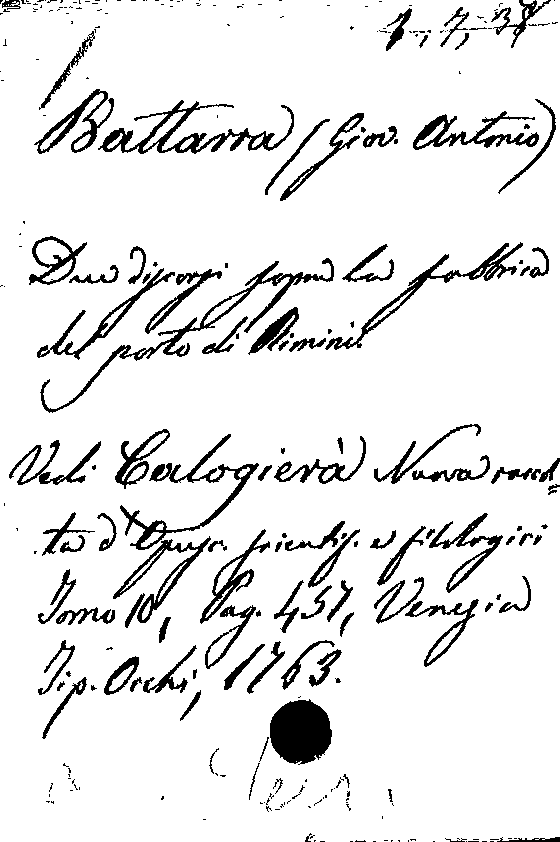 Battarra (Giov. Antonio)
Due discorsi sopra la fabbrica
del porto di Rimini.
Vedi Calogierà Nuova raccol=
ta d'Opusc. scientif. e filologici
Tomo 10, Pag. 457, Venezia
Tip. Occhi, 1763.